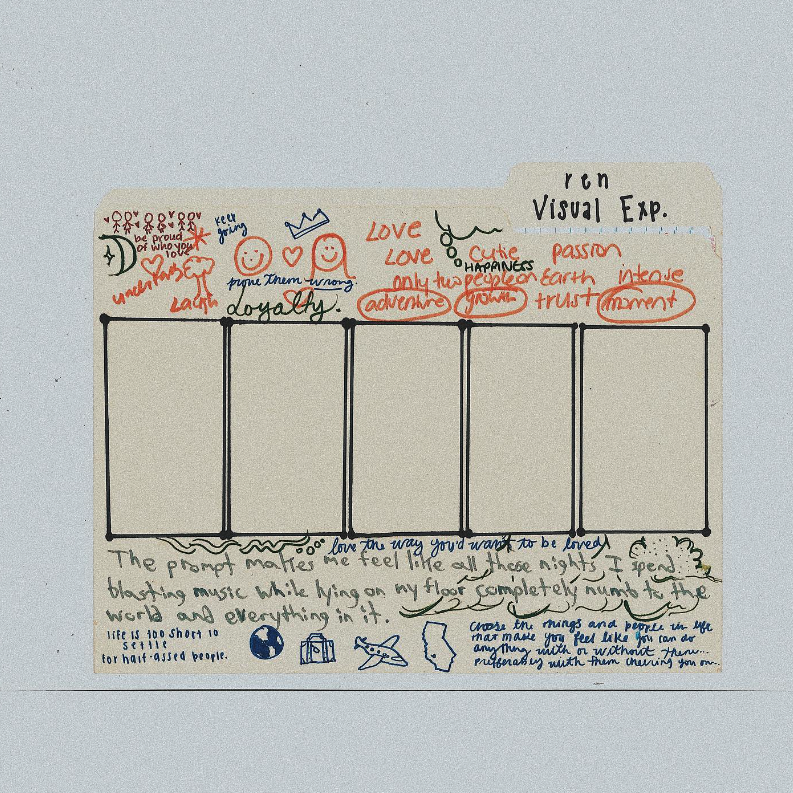 ren
Visual Exp.
keep
going
be proud
of who you
love
Laugh
prove them wrong
Loyalty.
Love
Love cutie passion
HAPPINESS
only two people on Earth intense
adventure growth trust moment
love the way you'd want to be loved
The prompt makes me feel like all those nights I spend
blasting music while lying on my floor completely numb to the
world and everything in it.
life is too short to
settle
for half-assed people.
choose the things and people in life
that make you feel like you can do
anything with or without them...
preferably with them cheering you on...